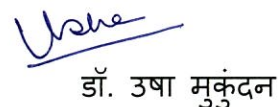 Usha
डॉ. उषा मुकुंदन